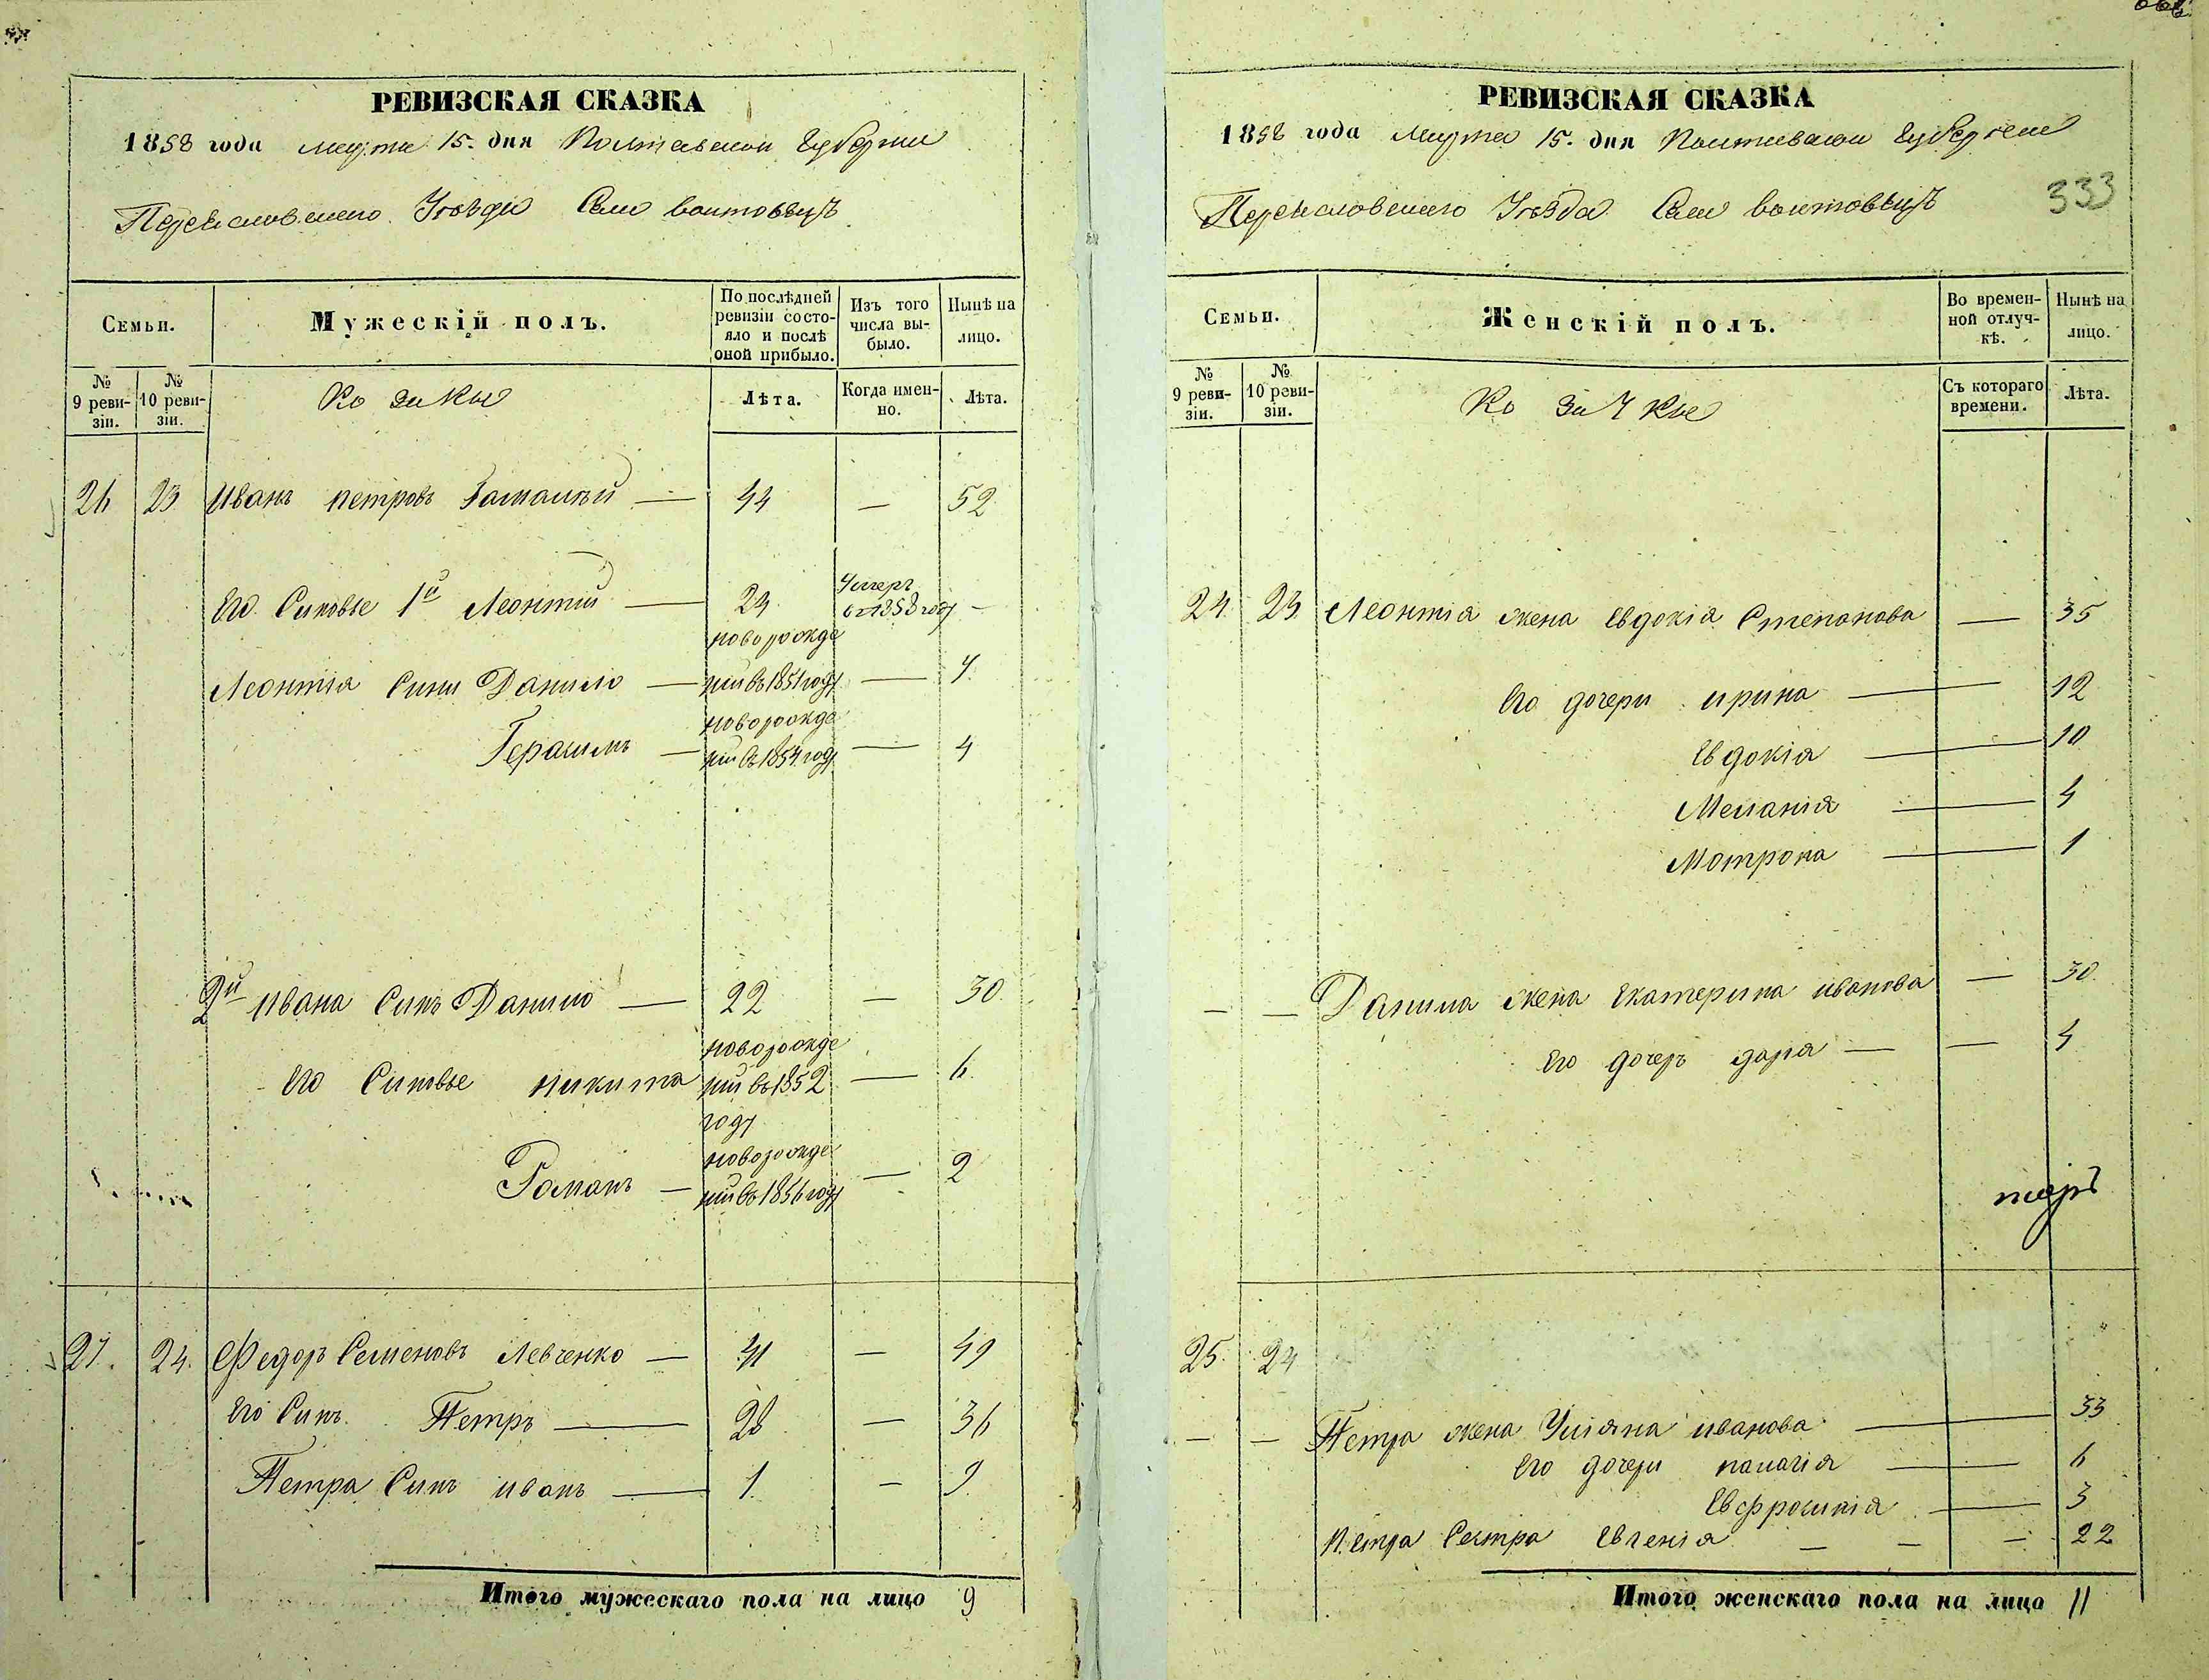 РЕВИЗСКАЯ СКАЗКА
1858 года марта 15. дня Полтавской Губерни
Переяславскаго Уѣзда Села Воитовецъ
Семьи.
Мужескій полъ.
По послѣдней ревизіи состояло и послѣ оной прибыло.
Изъ того числа выбыло.
Нынѣ на лицо.
№ 9 ревизіи.
№ 10 ревизіи.
Козаки
Лѣта.
Когда именно.
Лѣта.
26 23 Иванъ петровъ — 44 — 52
Его Синовье 1й Леонтий — 24 Умеръ 1858 году —
Леонтія Сини Данило — новорожденій въ 1851 году — 7
Герасимъ — новорожденій въ 1854 году — 4
2й Ивана Синъ Данило — 22 — 30.
Его Синовье никита новорожденій въ 1852 году — 6.
Романъ — новорожденій въ 1856 году — 2
27. 24. Федоръ Семеновъ Левченко — 41 — 49
Его Синъ. Петръ — 28 — 36
Петра Синъ иванъ — 1. — 9.
Итого мужескаго пола на лицо 9
РЕВИЗСКАЯ СКАЗКА
1858 года марта 15. дня Полтавской Губернии
Переяславскаго Уѣзда Села Воитовецъ
333
Семьи.
Женскій полъ.
Во временной отлучкѣ.
Нынѣ на лицо.
№ 9 ревизіи.
№ 10 ревизіи.
Козачки
Съ котораго времени.
Лѣта.
24. 23. Леонтія жена Евдокія Степанова — 35
Его дочери ирина — 12
Евдокія — 10
Меланія — 4
Мотрона — 1
— — Данила жена Екатерина иванова — 30.
Его дочеръ дарія — — 4
25. 24
— — Петра жена Уліяна иванова — 33
Его дочери палагія — 6
Евфросинія — 3
Петра Сестра Евгенія — — — 22
Итого женскаго пола на лицо 11